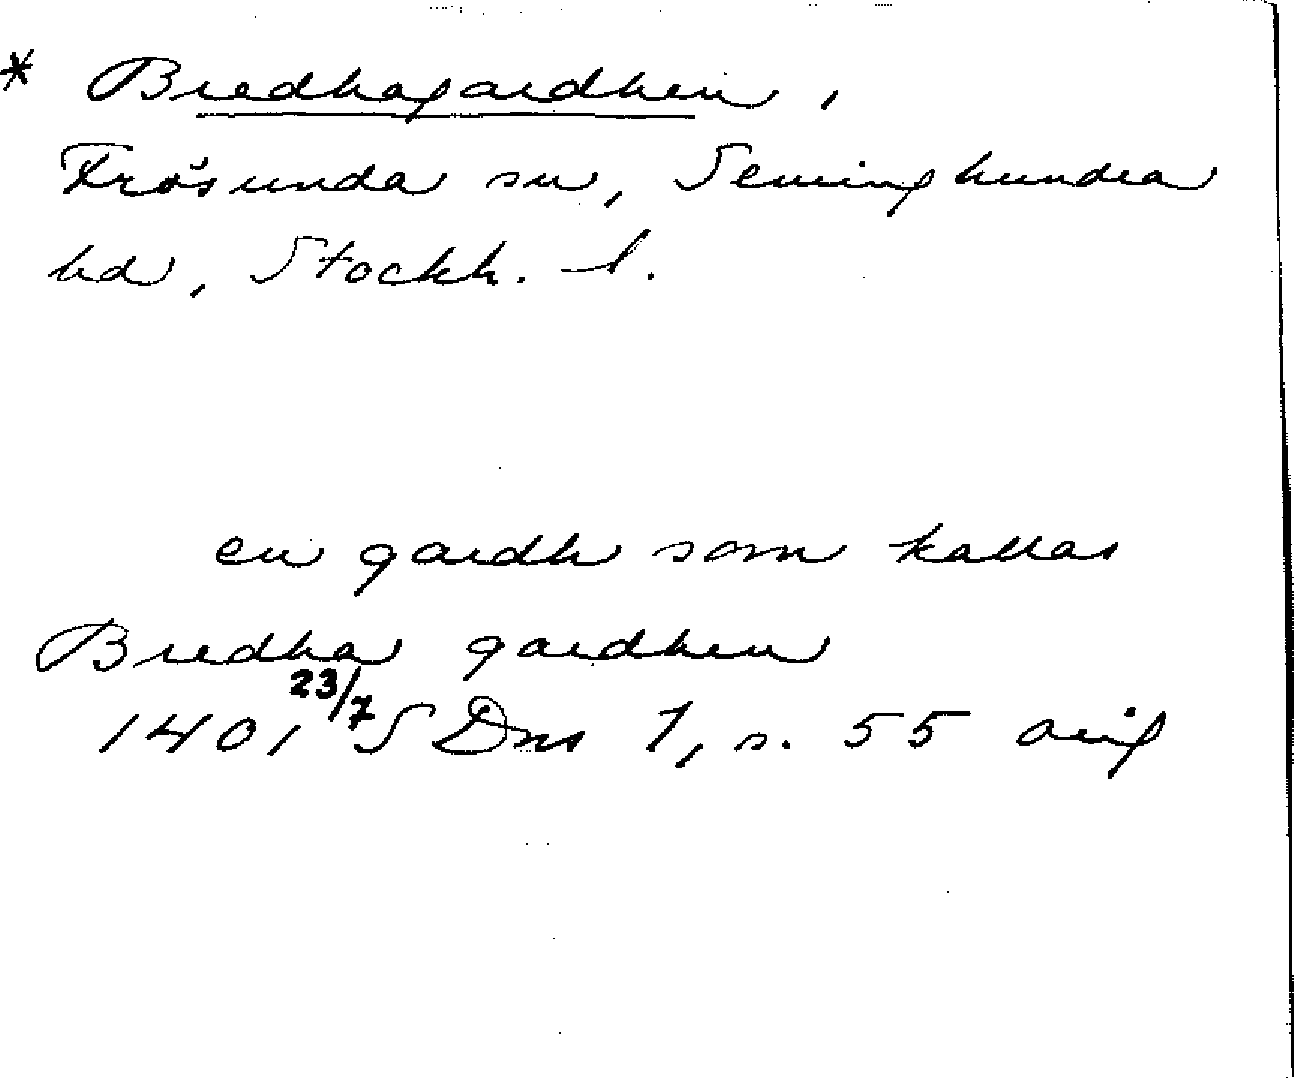 * Bredhagardhen,
Frösunda sn, Seminghundra
hd, Stockh. l.
en gardh som kallas
Bredha gardhen
1401 23/7 SDns 1, s. 55 orig